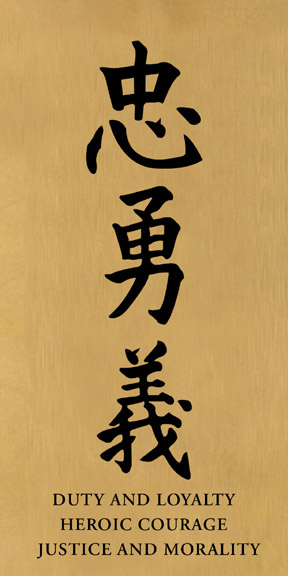 忠
勇
義
DUTY AND LOYALTY
HEROIC COURAGE
JUSTICE AND MORALITY